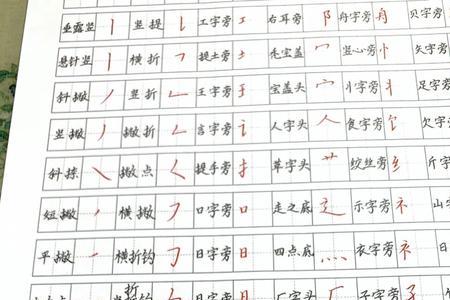 垂露竖 丨 竖提 工字旁 工 右耳旁 阝 舟字旁 舟 贝字旁
悬针竖 丨 横折 ㇕ 提土旁 土 秃宝盖 冖 竖心旁 忄 矢字旁
斜撇 丿 竖折 ㇗ 王字旁 王 宝盖头 宀 丬字旁 丬 足字旁
竖撇 丿 撇折 ㇜ 言字旁 讠 人字头 人 食字旁 饣 欠字
斜捺 ㇏ 撇点 ㇛ 提手旁 扌 草字头 艹 绞丝旁 纟 斤字
短撇 ㇒ 横撇 ㇇ 口字旁 口 走之底 辶 示字旁 礻 山字
平撇 ㇒ 横折钩 ㇆ 日字旁 日 四点底 灬 衣字旁 衤 春字
折 日字旁 日 厂字头 厂 子字旁 子